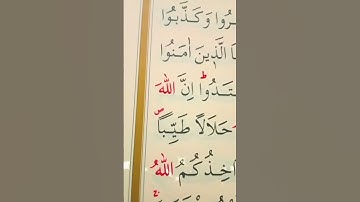 ـرُوا وَكَذَّبُوا
ـا الَّذِينَ اٰمَنُوا
ـتَدُواؕ اِنَّ اللّٰهَ
حَلَالًا طَيِّبًاۖ
ـاخِذُكُمُ اللّٰهُ